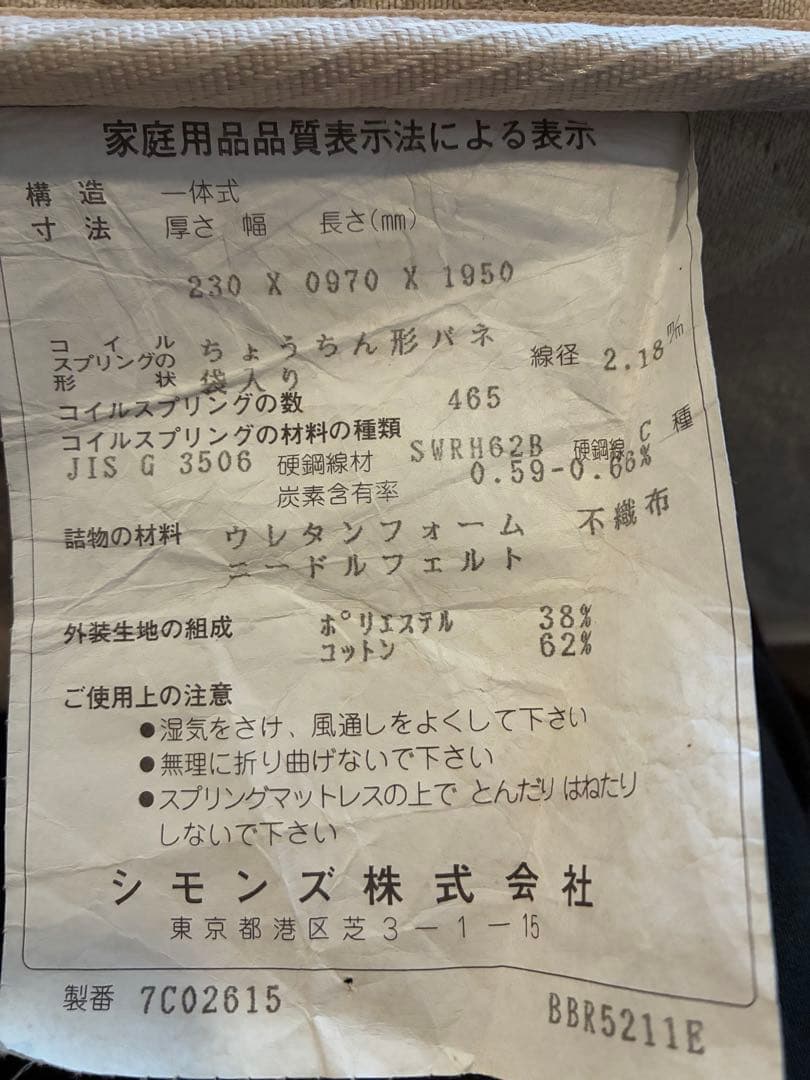 家庭用品品質表示法による表示
構造 一体式
寸法 厚さ 幅 長さ(mm)
230 X 0970 X 1950
コイルスプリングの形状 ちょうちん形バネ 袋入り 線径 2.18 m/m
コイルスプリングの数 465
コイルスプリングの材料の種類
JIS G 3506 硬鋼線材 SWRH62B 硬鋼線 C 種
炭素含有率 0.59-0.66%
詰物の材料 ウレタンフォーム 不織布
ニードルフェルト
外装生地の組成 ポリエステル 38%
コットン 62%
ご使用上の注意
●湿気をさけ、風通しをよくして下さい
●無理に折り曲げないで下さい
●スプリングマットレスの上で とんだり はねたり
しないで下さい
シモンズ株式会社
東京都港区芝3-1-15
製番 7C02615 BBR5211E